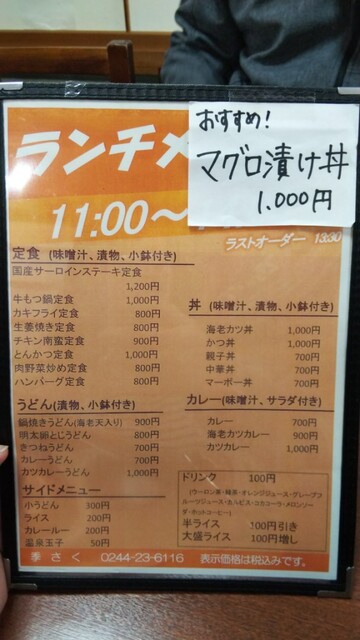 おすすめ!
マグロ漬け丼
1,000円
ランチメ
11:00～
ラストオーダー 13:30
定食 (味噌汁、漬物、小鉢付き)
国産サーロインステーキ定食
1,200円
牛もつ鍋定食 1,000円
カキフライ定食 800円
生姜焼き定食 800円
チキン南蛮定食 900円
とんかつ定食 1,000円
肉野菜炒め定食 800円
ハンバーグ定食 800円
うどん(漬物、小鉢付き)
鍋焼きうどん(海老天入り) 900円
明太卵とじうどん 800円
きつねうどん 700円
カレーうどん 700円
カツカレーうどん 1,000円
サイドメニュー
小うどん 300円
ライス 200円
カレールー 200円
温泉玉子 50円
丼 (味噌汁、漬物、小鉢付き)
海老カツ丼 1,000円
かつ丼 1,000円
親子丼 700円
中華丼 700円
マーボー丼 700円
カレー(味噌汁、サラダ付き)
カレー 700円
海老カツカレー 900円
カツカレー 1,000円
ドリンク 100円
(ウーロン茶・緑茶・オレンジジュース・グレープフ
ルーツジュース・カルピス・コカコーラ・メロンソー
ダ・ホットコーヒー)
半ライス 100円引き
大盛ライス 100円増し
季さく 0244-23-6116 表示価格は税込みです。